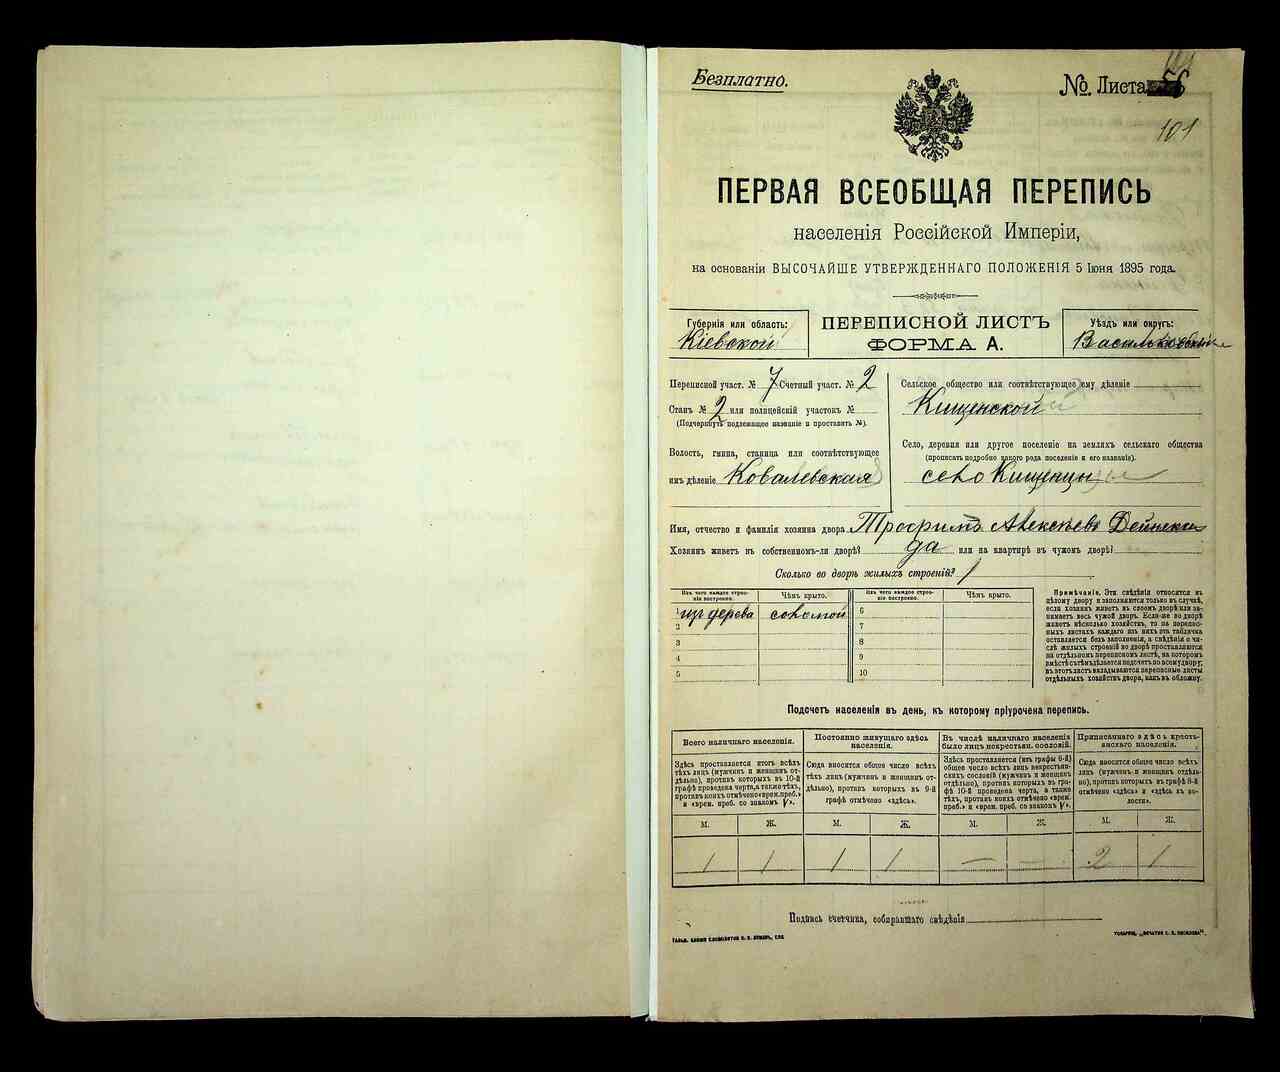 Безплатно.
№ Листа 56
101
ПЕРВАЯ ВСЕОБЩАЯ ПЕРЕПИСЬ
населенія Россійской Имперіи,
на основаніи ВЫСОЧАЙШЕ УТВЕРЖДЕННАГО ПОЛОЖЕНІЯ 5 Іюня 1895 года.
Губернія или область:
Кіевской
ПЕРЕПИСНОЙ ЛИСТЪ
ФОРМА А.
Уѣздъ или округъ:
Васильковскій
Переписной участ. № 7 Счетный участ. № 2
Станъ № 2 или полицейскій участокъ №
(Подчеркнуть подлежащее названіе и проставить №).
Волость, гмина, станица или соотвѣтствующее
имъ дѣленіе Ковалевская
Сельское общество или соотвѣтствующее ему дѣленіе
Кищенской
Село, деревня или другое поселеніе на земляхъ сельскаго общества
(прописать подробно какого рода поселеніе и его названіе).
село Кищенцы
Имя, отчество и фамилія хозяина двора Трофимъ Алексѣевъ Дейнека
Хозяинъ живетъ въ собственномъ-ли дворѣ? да или на квартирѣ въ чужомъ дворѣ?
Сколько во дворѣ жилыхъ строеній? 1
Изъ чего каждое строеніе построено. Чѣмъ крыто. Изъ чего каждое строеніе построено. Чѣмъ крыто.
1 изъ дерева соломой 6
2 7
3 8
4 9
5 10
Примѣчаніе. Эти свѣдѣнія относятся къ
цѣлому двору и заполняются только въ случаѣ,
если хозяинъ живетъ въ своемъ дворѣ или занимаетъ
весь чужой дворъ. Если-же во дворѣ
живетъ нѣсколько хозяйствъ, то на переписныхъ
листахъ каждаго изъ нихъ эта табличка
оставляется безъ заполненія, а свѣдѣнія о числѣ
жилыхъ строеній во дворѣ проставляются
на отдѣльномъ переписномъ листѣ, на которомъ
вмѣстѣ съ тѣмъ дѣлается подсчетъ по всему двору;
въ этотъ листъ вкладываются переписные листы
отдѣльныхъ хозяйствъ двора, какъ въ обложку.
Подсчетъ населенія въ день, къ которому пріурочена перепись.
Всего наличнаго населенія.
Здѣсь проставляется итогъ всѣхъ
тѣхъ лицъ (мужчинъ и женщинъ отдѣльно),
противъ которыхъ въ 10-й
графѣ проведена черта, а также тѣхъ,
противъ коихъ отмѣчено «врем. преб.»
и «врем. преб. со знакомъ V».
Постоянно живущаго здѣсь
населенія.
Сюда вносится общее число всѣхъ
тѣхъ лицъ (мужчинъ и женщинъ отдѣльно),
противъ которыхъ въ 9-й
графѣ отмѣчено «здѣсь».
Въ числѣ наличнаго населенія
было лицъ некрестьян. сословій.
Здѣсь проставляется (изъ графы 6-й)
общее число всѣхъ лицъ некрестьянскихъ
сословій (мужчинъ и женщинъ
отдѣльно), противъ которыхъ въ
графѣ 10-й проведена черта, а также
тѣхъ, противъ коихъ отмѣчено «врем.
преб.» и «врем. преб. со знаком V».
Приписаннаго здѣсь крестьянскаго
населенія.
Сюда вносится общее число всѣхъ
лицъ (мужчинъ и женщинъ отдѣльно),
противъ которыхъ въ графѣ 8-й
отмѣчено «здѣсь» и «здѣсь въ волости».
М. Ж. М. Ж. М. Ж. М. Ж.
1 1 1 1 — — 2 1
Подпись счетчика, собиравшаго свѣдѣнія